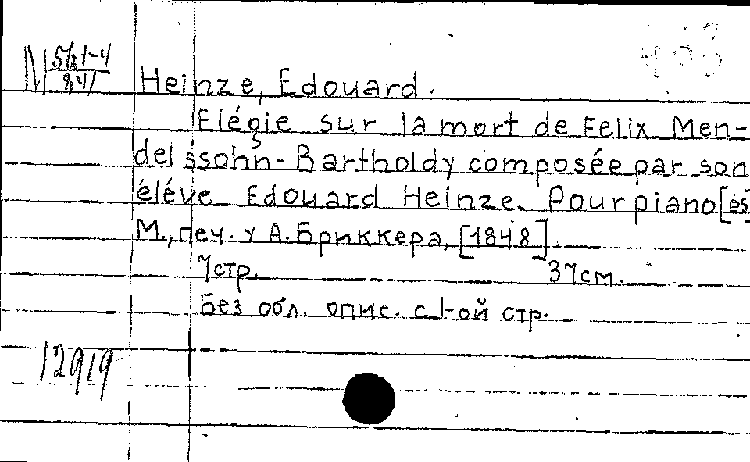 M 561-4
841
Heinze, Edouard.
Elégie sur la mort de Felix Men-
delssohn-Bartholdy composée par son
élève Edouard Heinze. Pour piano [es]
М., печ. у А. Бриккера, [1848].
7стр. 37см.
Без обл. опис. с 1-ой стр.
12919